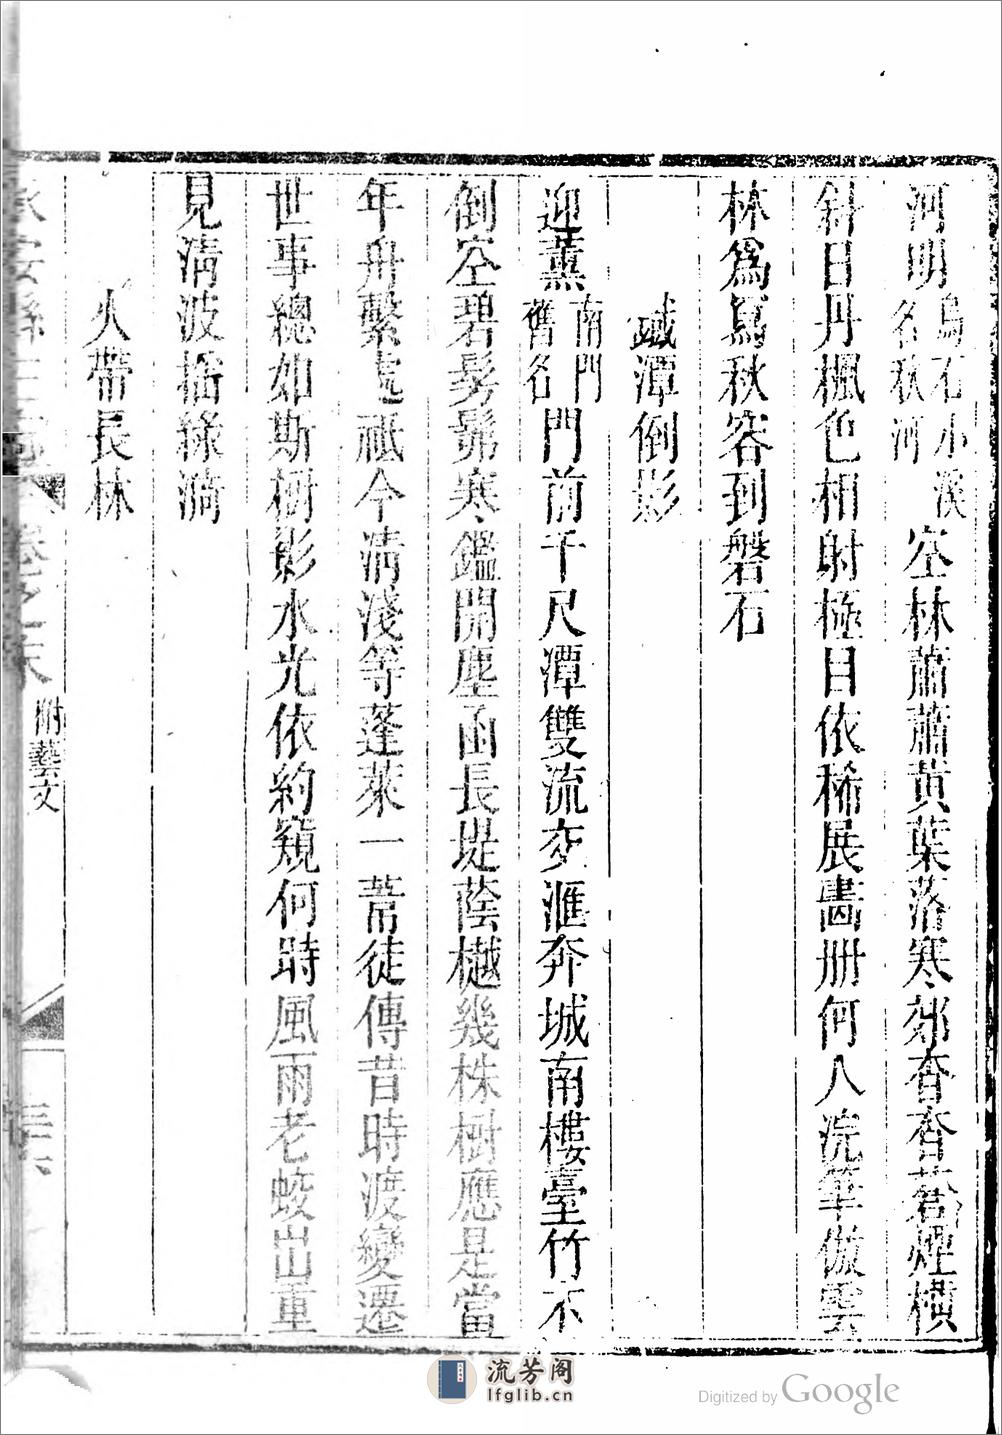 河明烏石小溪名秋河空林蕭蕭黃葉落寒郊杳杳蒼煙橫
斜日丹楓色相射極目依稀展畵册何人浣筆倣雲
林爲寫秋容到磐石
鏚潭倒影
迎薰南門舊名門前千尺潭雙流交滙奔城南樓臺竹木
倒空碧髣髴寒鑑開塵函長堤蔭樾幾株樹應是當
年舟繫處祇今清淺等蓬萊一葦徒傳昔時渡變遷
世事總如斯樹影水光依約窺何時風雨老蛟出重
見清波揺綠漪
火帶長林
永安縣三志
卷之末
附藝文
三十六
流芳阁
lfglib.cn
Digitized by Google